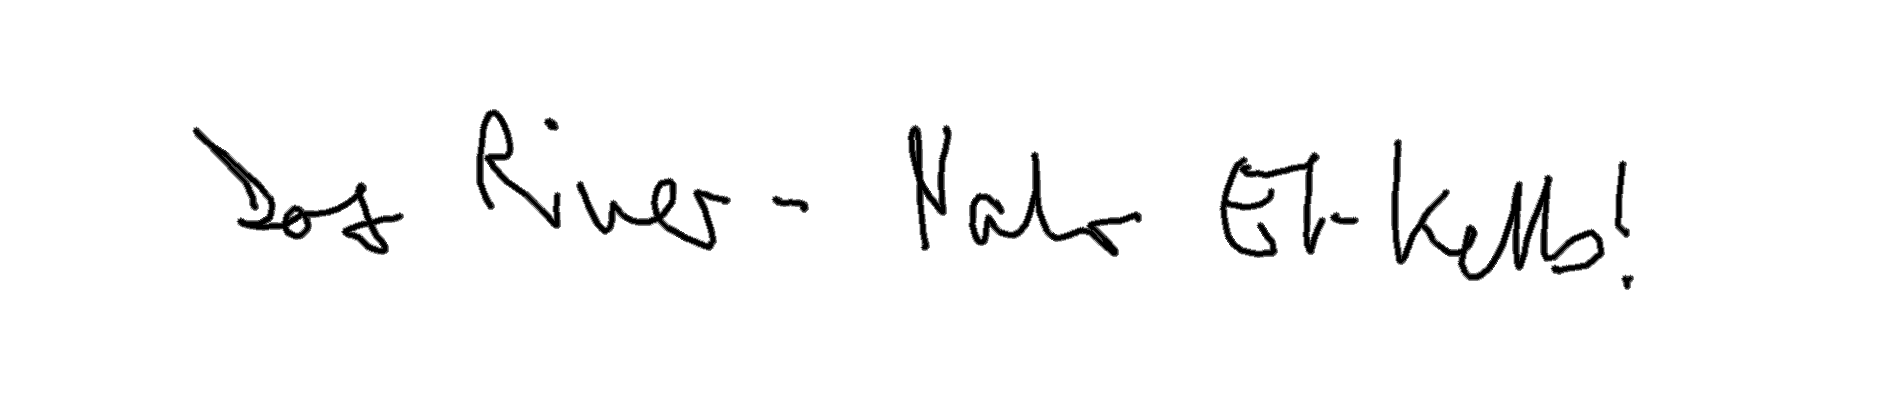 Dog River - Nahr El-Kelb!